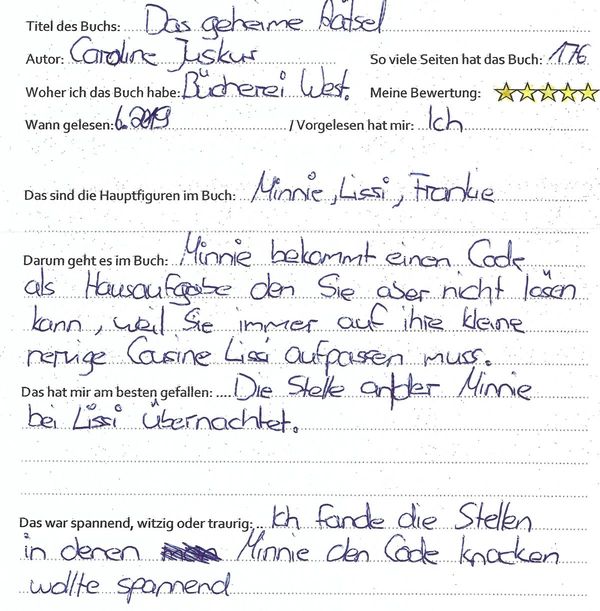 Titel des Buchs: Das geheime Rätsel
Autor: Caroline Juskus So viele Seiten hat das Buch: 176
Woher ich das Buch habe: Bücherei West. Meine Bewertung:
Wann gelesen: 6.2019 / Vorgelesen hat mir: Ich
Das sind die Hauptfiguren im Buch: Minnie, Lissi, Frankie
Darum geht es im Buch: Minnie bekommt einen Code
als Hausaufgabe den Sie aber nicht lösen
kann, weil Sie immer auf ihre kleine
nervige Cousine Lissi aufpassen muss.
Das hat mir am besten gefallen: .... Die Stelle an der Minnie
bei Lissi übernachtet.
Das war spannend, witzig oder traurig: .. Ich fande die Stellen
in denen Minnie den Code knacken
wollte spannend